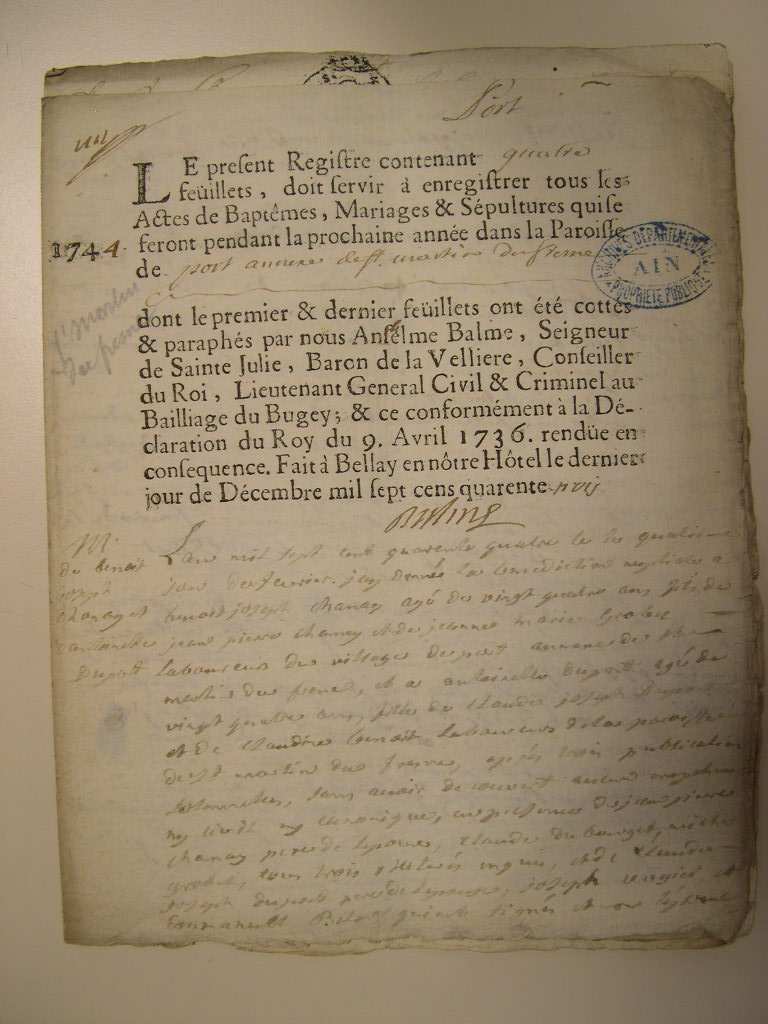 Port
LE present Registre contenant quatre
feüillets, doit servir à enregistrer tous les
Actes de Baptêmes, Mariages & Sépultures qui se
1744 feront pendant la prochaine année dans la Paroisse
de port annexe de st. martin du fresne
ARCHIVES DEPARTEMENTALES
AIN
PROPRIETE PUBLIQUE
St Martin
du fresne
dont le premier & dernier feüillets ont été cottés
& paraphés par nous Anselme Balme, Seigneur
de Sainte Julie, Baron de la Velliere, Conseiller
du Roi, Lieutenant General Civil & Criminel au
Bailliage du Bugey; & ce conformément à la Dé-
claration du Roy du 9. Avril 1736. rendüe en
consequence. Fait à Bellay en nôtre Hôtel le dernier
jour de Décembre mil sept cens quarente trois
Balme
M.
de benoit
joseph
chanay et
antoinette
duport
Lan mil sept cent quarente quatre le
jour de fevrier jay donné la benediction nuptiale a
benoit joseph chanay agé de vingt quatre ans fils de
jean pierre chanay et de jeanne marie
laboureur du village de port annexe de st
martin du fresne, et a antoinette duport agée de
vingt quatre ans, fille de claude joseph duport
et de claudine benoit laboureur de la paroisse
de st martin du fresne, apres trois publication
sans avoir decouvert aucune
ny civil ny canonique, en presence de jean pierre
chanay pere de lepoux, claude du bourget,
tous trois enquis, et de claude
joseph duport pere de lepouse, joseph et
qui ont signés